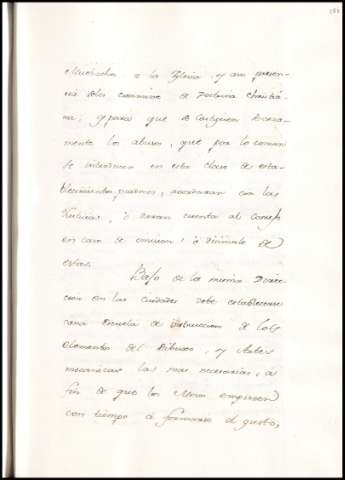 Muchachos a la Iglesia, y aun presen-
cia de los examines de Doctrina Christia-
na; y para que se corrijan seriamente
mente los abusos, que por lo comun
se introducen en esta clase de esta-
blecimientos, quienes, acordaran con las
Justicias, ò daran cuenta al Consejo
en caso de omision, ò disimulo de
estas.
Bajo de la misma Direc-
cion en las ciudades debe establecerse
una Escuela de instruccion de los
elementos del Dibuxo, y Artes
mecanicas las mas necesarias, a
fin de que los Niños empiesen
con tiempo à formarse el gusto,